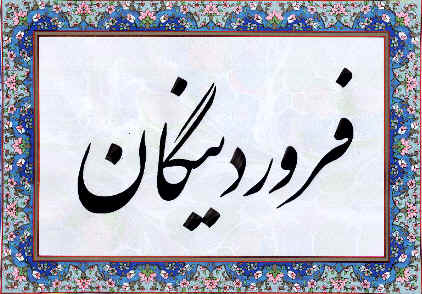 فروردینگان